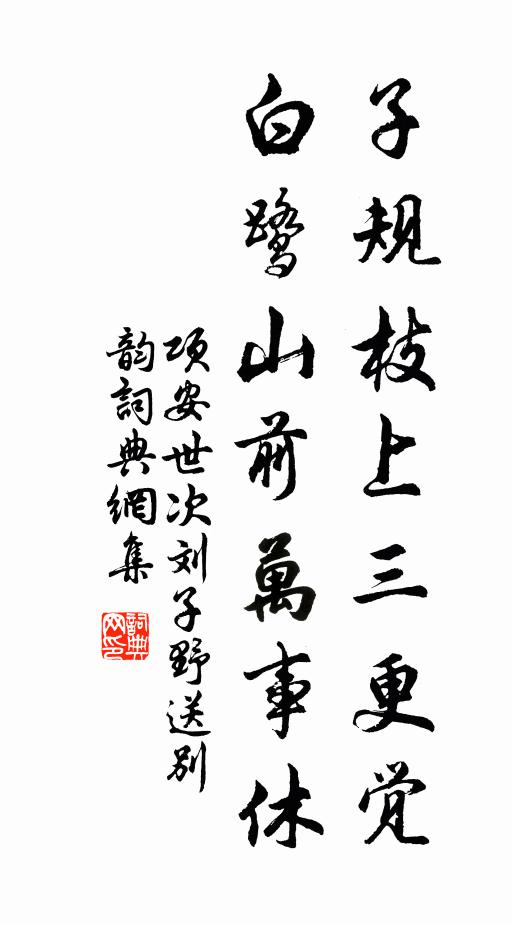 子规枝上三更觉
白鹭山前萬事休
项安世次刘子野送别
韵詞典網集
詞典
网印